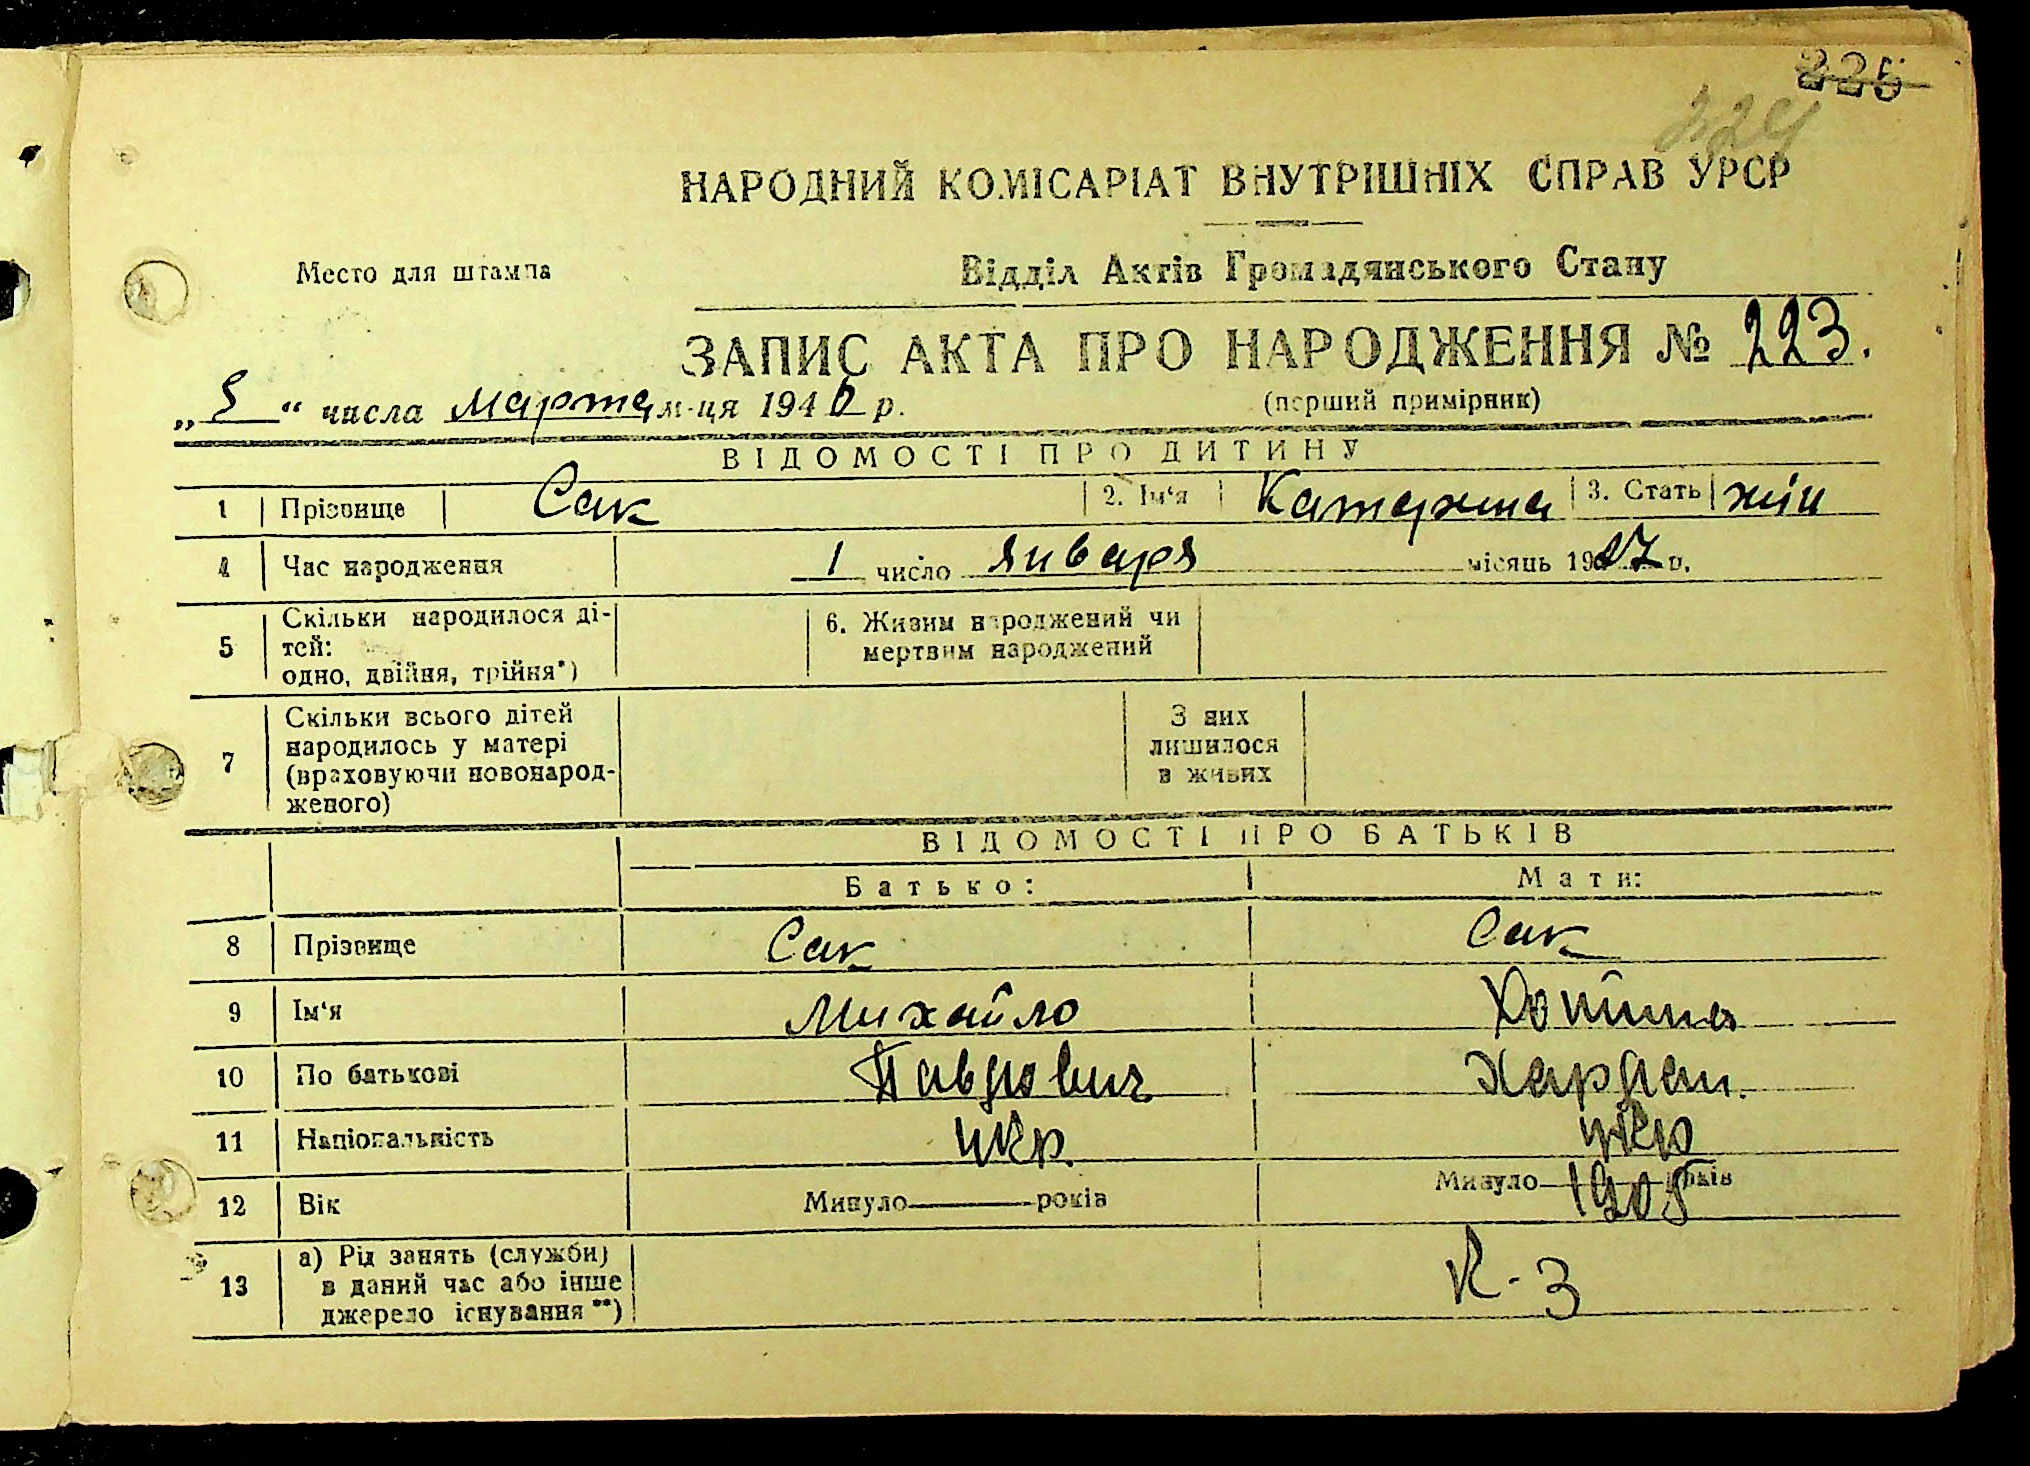 225
224
НАРОДНИЙ КОМІСАРІАТ ВНУТРІШНІХ СПРАВ УРСР
Место для штампа
Відділ Актів Громадянського Стану
ЗАПИС АКТА ПРО НАРОДЖЕННЯ № 223.
„ 5 “ числа марта м-ця 1946 р.
(перший примірник)
ВІДОМОСТІ ПРО ДИТИНУ
1 Прізвище Сак 2. Ім‘я Катерина 3. Стать жін
4 Час народження 1 число января місяць 1927 р.
5 Скільки народилося ді-
тей:
одно, двійня, трійня*)
6. Живим народжений чи
мертвим народжений
7 Скільки всього дітей
народилось у матері
(враховуючи новонарод-
женого)
З них
лишилося
в живих
ВІДОМОСТІ ПРО БАТЬКІВ
Батько: Мати:
8 Прізвище Сак Сак
9 Ім‘я Михайло
10 По батькові Павлович
11 Національність укр. укр
12 Вік Минуло років Минуло 1905 років
13 а) Рід занять (служби)
в даний час або інше
джерело існування**)
К-З